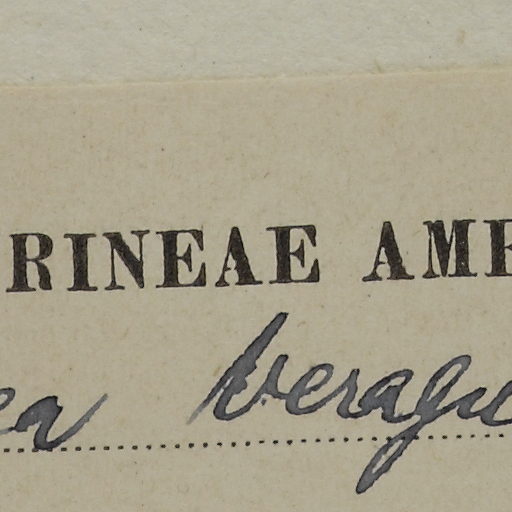 RINEAE AME
ea veragu